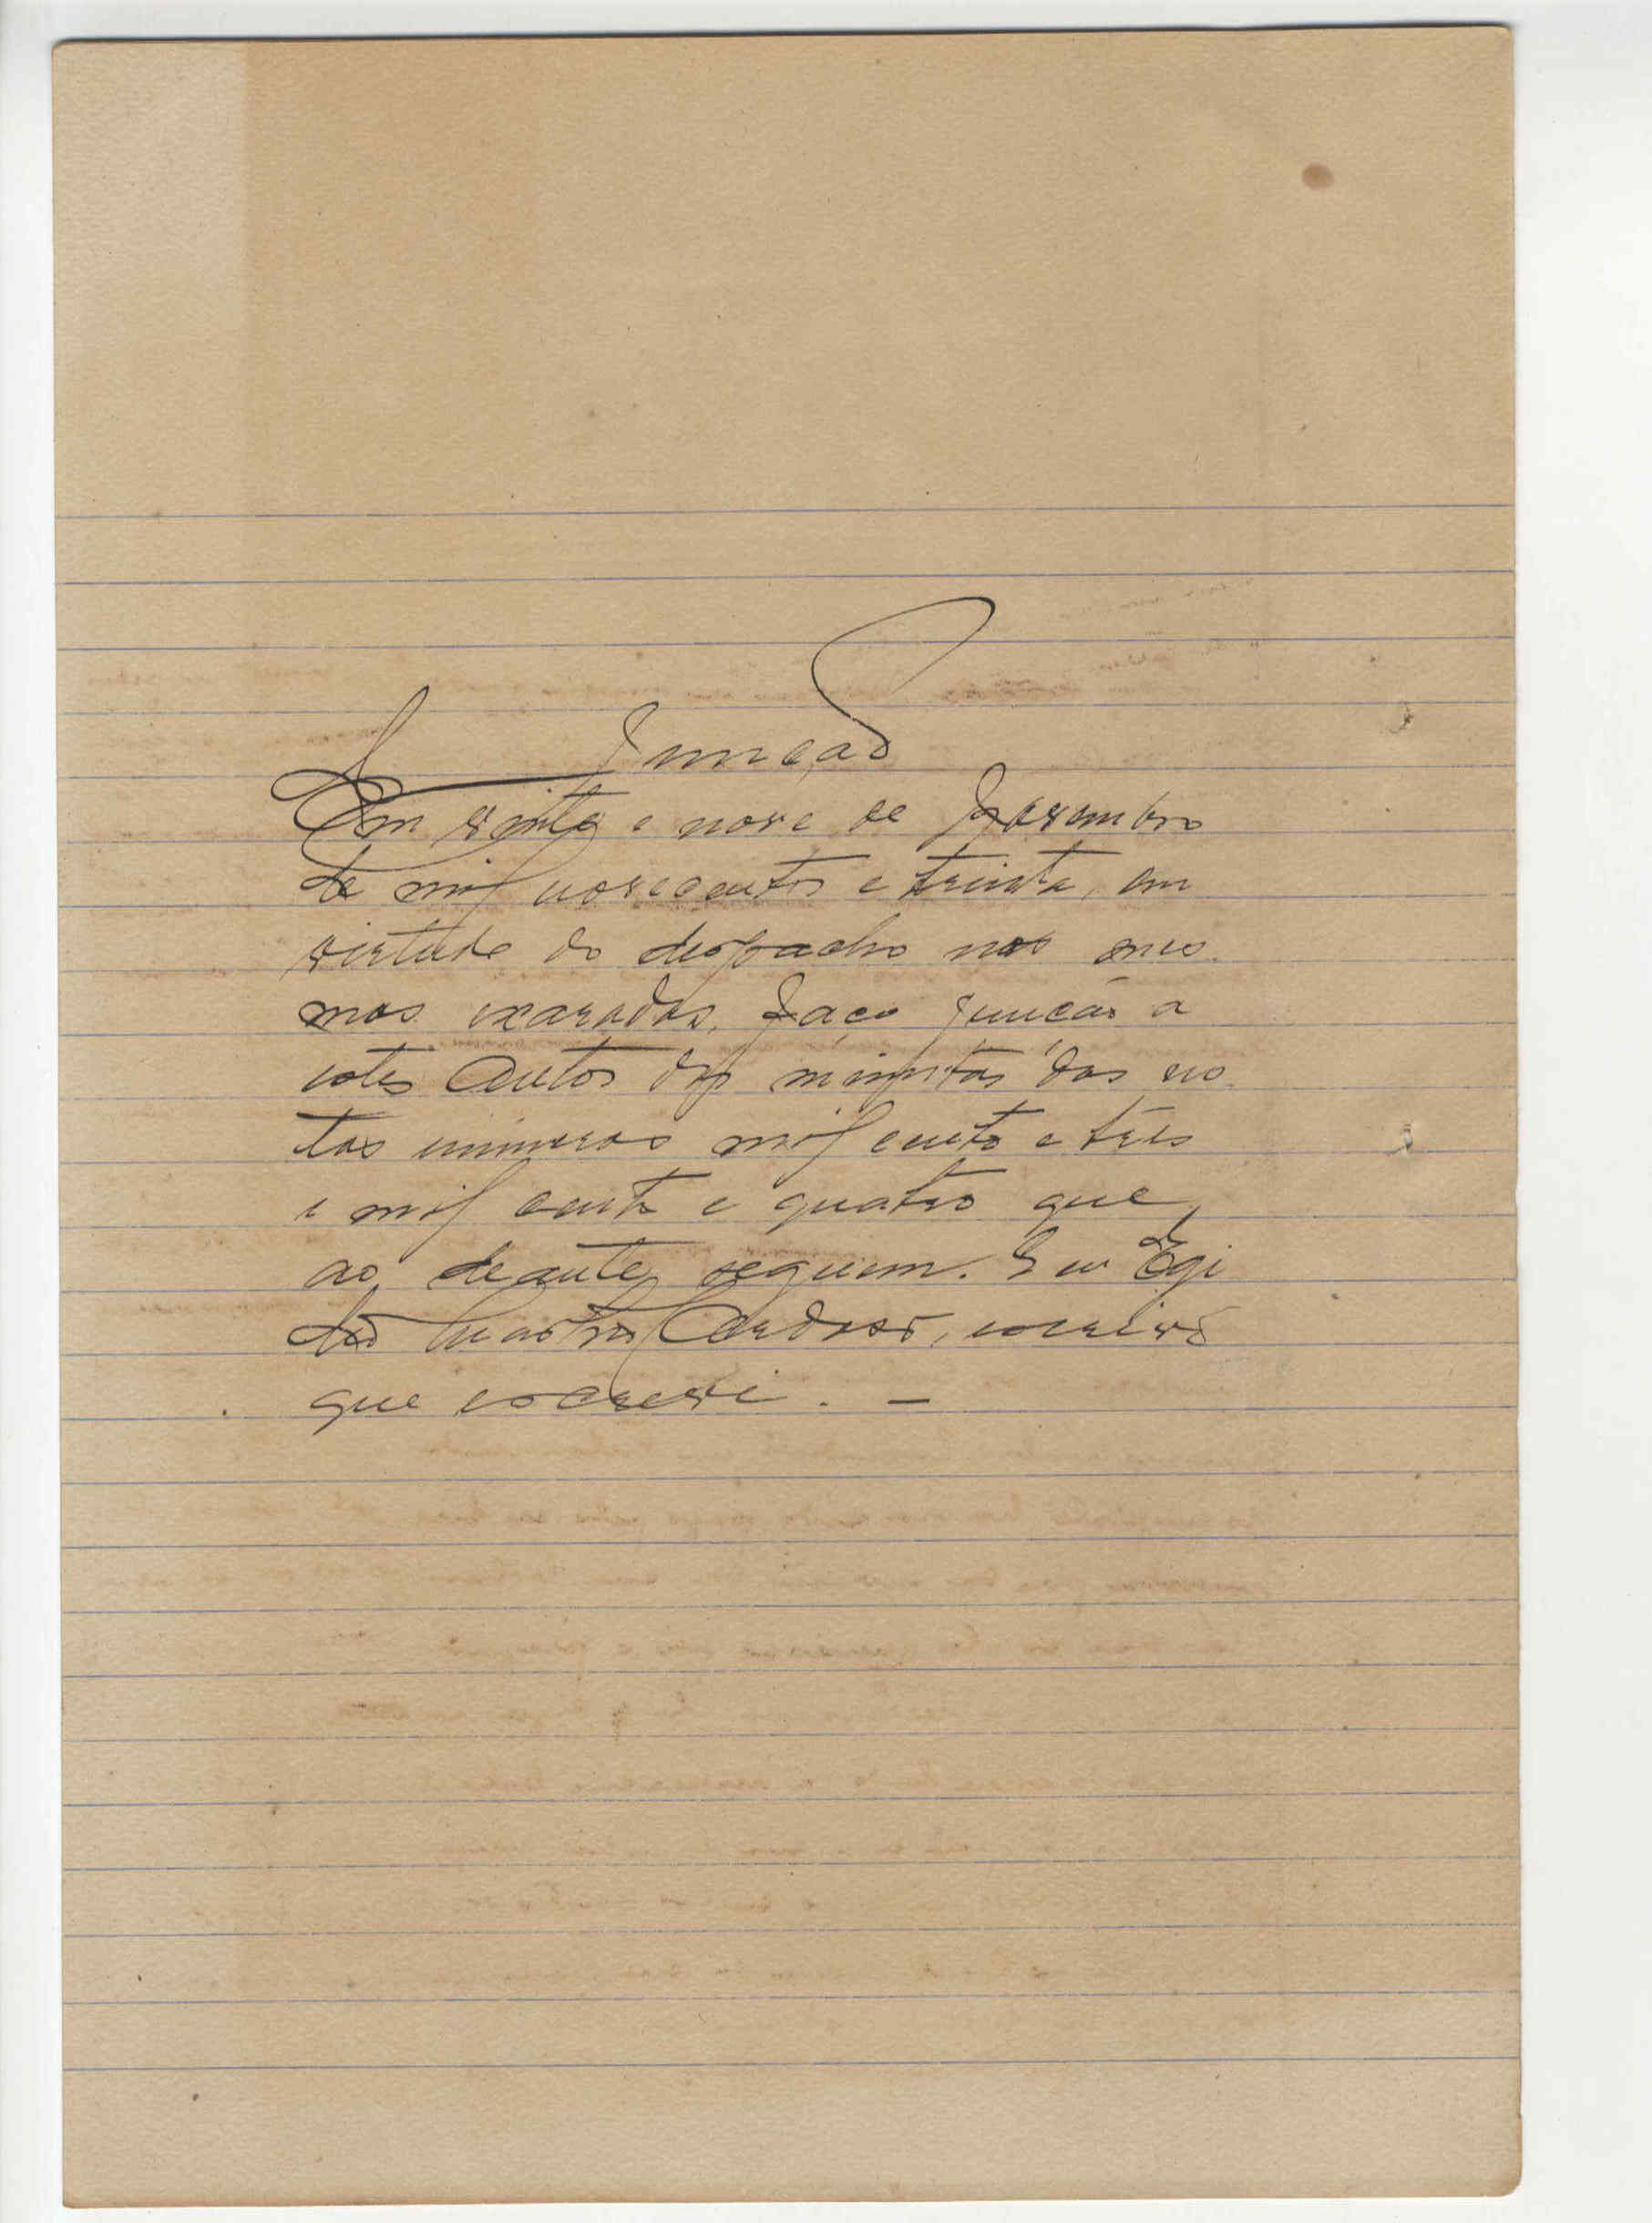 Juncção
Em vinte e nove de Dezembro
de mil novecentos e trinta, em
virtude do despacho nos mes-
mos exarados, faço juncção a
estes autos das minutas das no-
tas números mil cento e três
e mil cento e quatro que
ao deante seguem. Eu Egi
dio Cardoso, escrivão
que escrevi. —